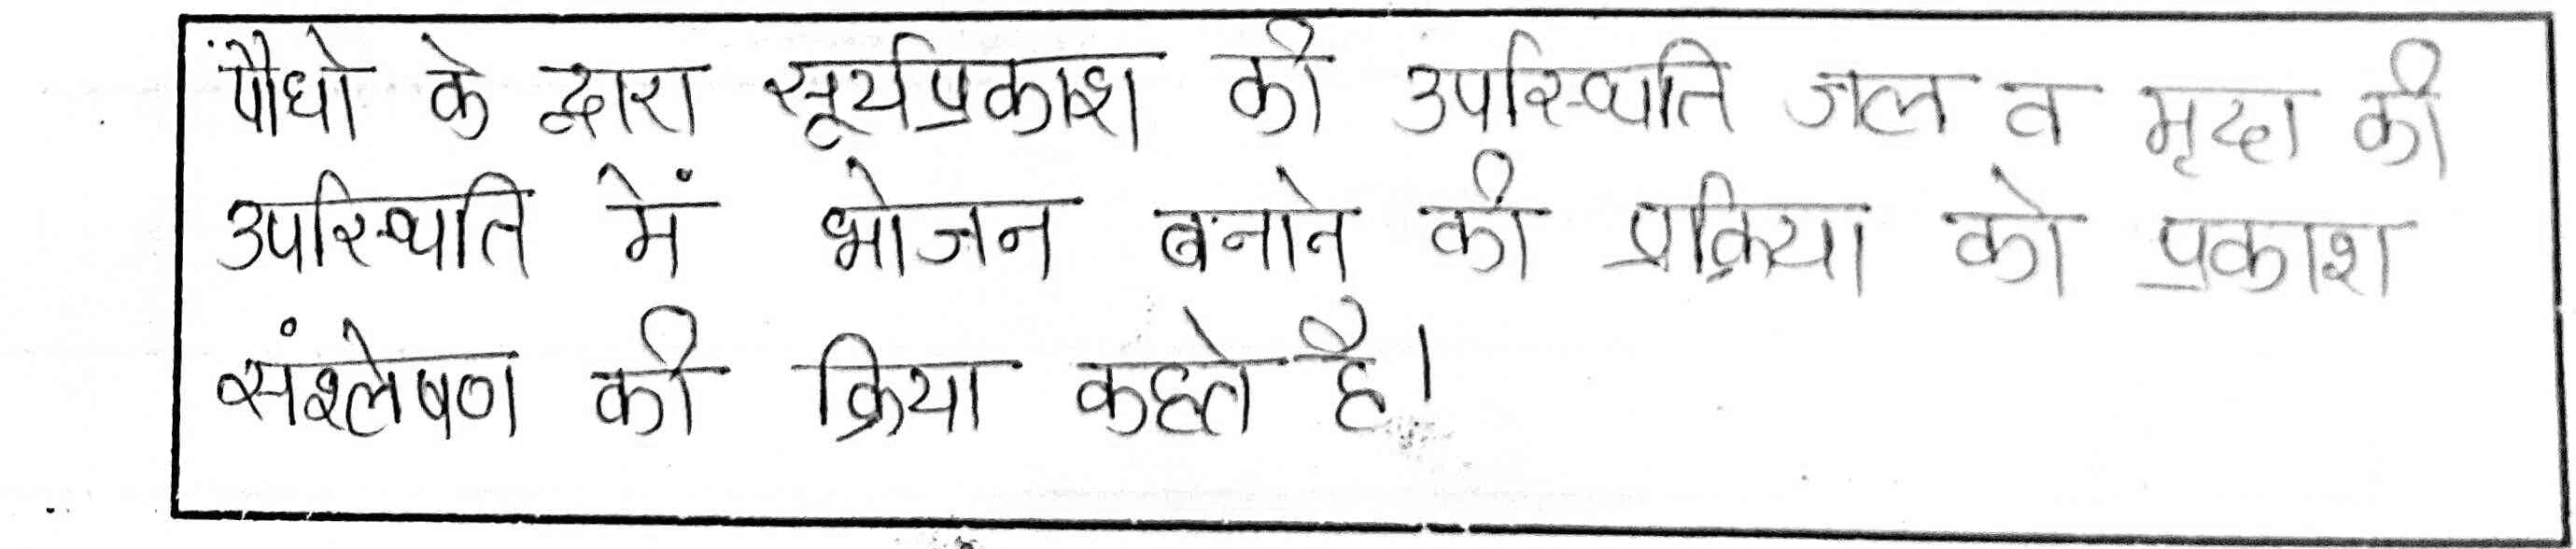 पौधो के द्वारा सूर्यप्रकाश की उपस्थिति जल व मृदा की
उपस्थिति में भोजन बनाने की प्रक्रिया को प्रकाश
संश्लेषण की क्रिया कहते है।